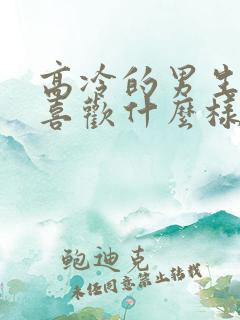 高冷的男生
喜歡什麼樣
鲍迪克
未经同意禁止转载